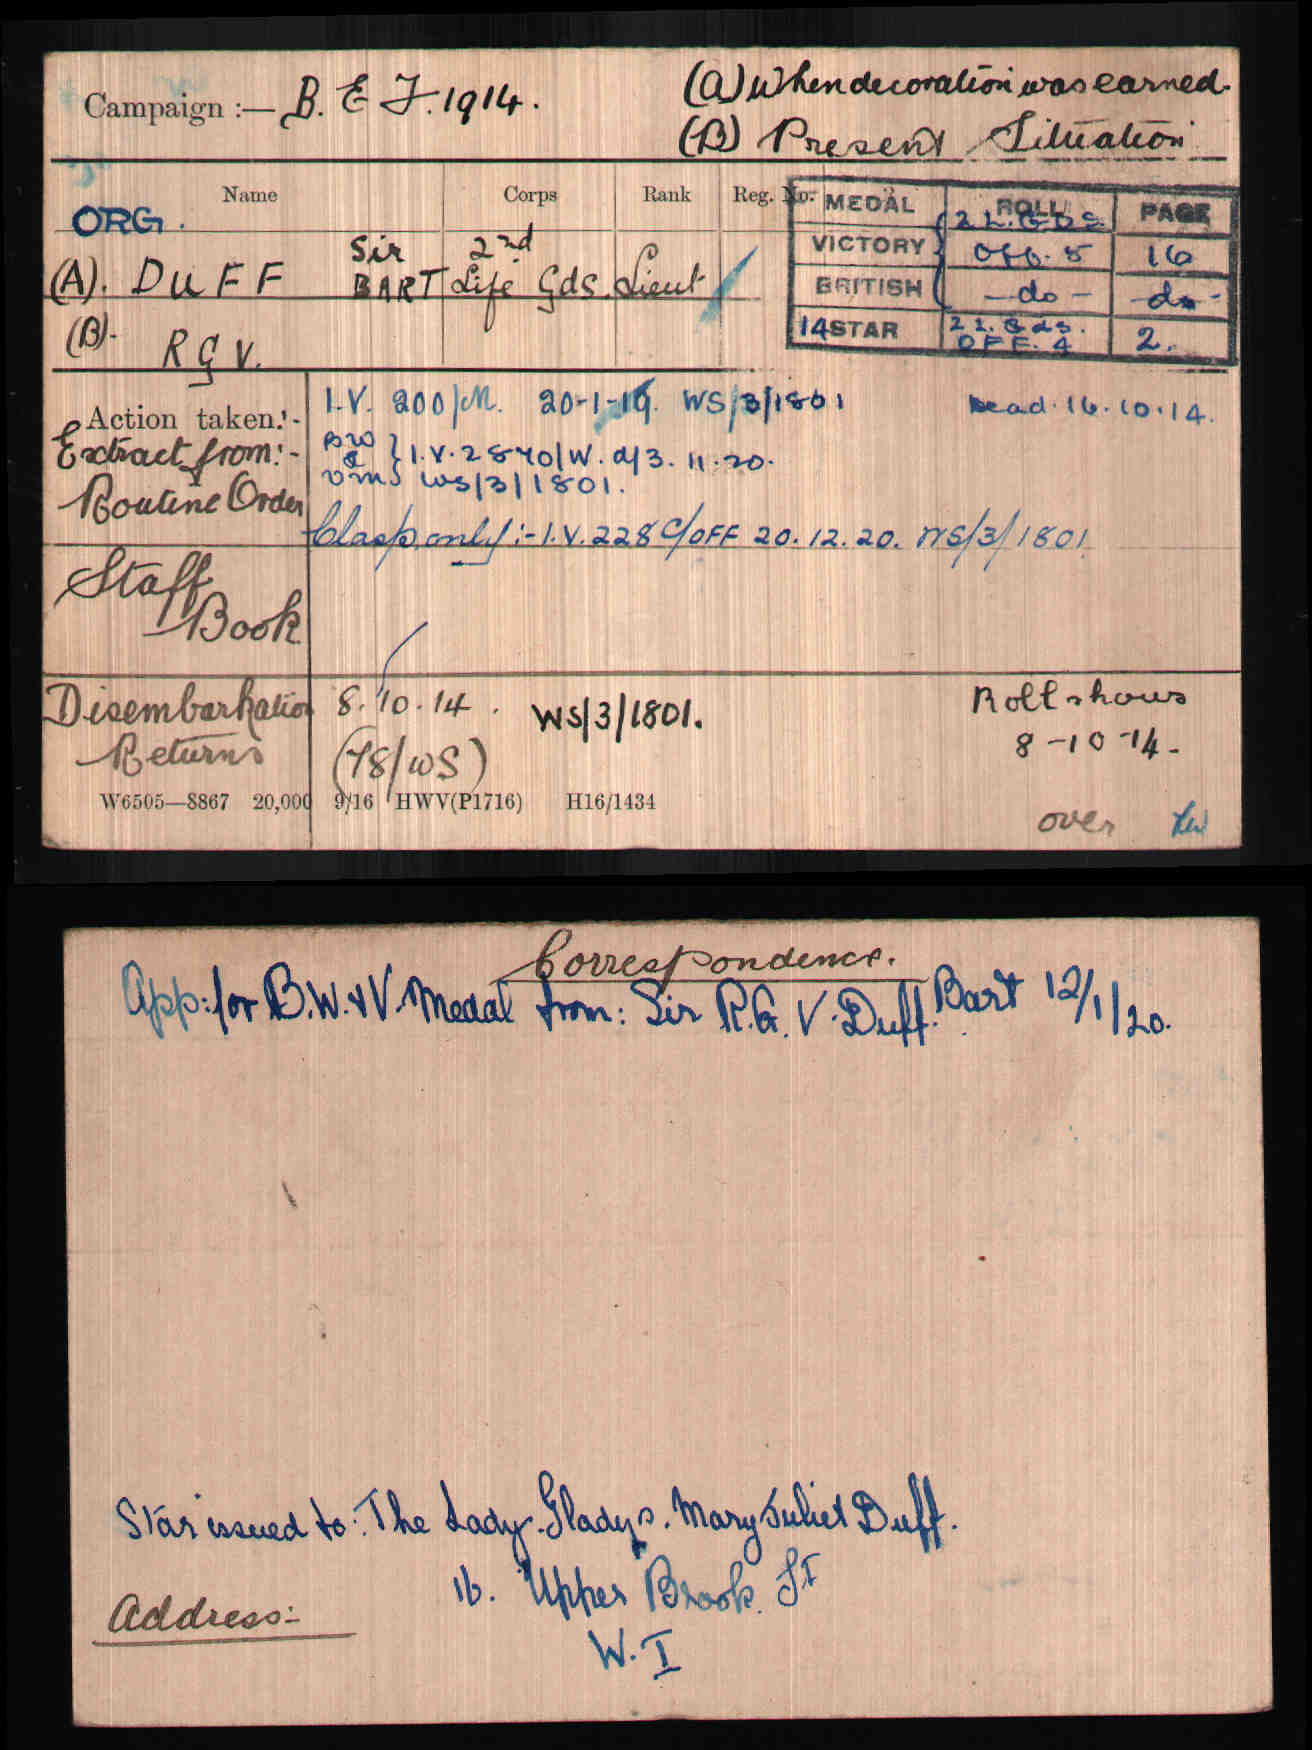 Campaign :— B. E. F. 1914.
(A) When decoration was earned.
(B) Present Situation
Name Corps Rank Reg. No.
MEDAL ROLL PAGE
ORG.
2 L. GDS.
VICTORY Off. 5 16
(A). DUFF Sir BART 2nd Life Gds. Lieut
BRITISH — do — — do -
(B). R G V.
14 STAR 2 L. Gds. OFF. 4 2.
Action taken:-
I.V. 200/M. 20-1-19. WS/3/1801 Dead. 16.10.14.
Extract from:-
I.V. 2840/W. d/3. 11. 20.
Routine Order
WS/3/1801.
Clasp only:- I.V. 228 C/OFF 20. 12. 20. WS/3/1801
Staff
Book
Disembarkation 8. 10. 14. WS/3/1801. Roll shows
Returns (78/WS) 8-10-14-
W6505—8867 20,000 9/16 HWV(P1716) H16/1434
over
Correspondence.
App: for B.W. & V. Medal from: Sir R. G. V. Duff. Bart 12/1/20.
Star issued to: The Lady. Gladys. Mary Juliet Duff.
16. Upper Brook St
Address:-
W. I